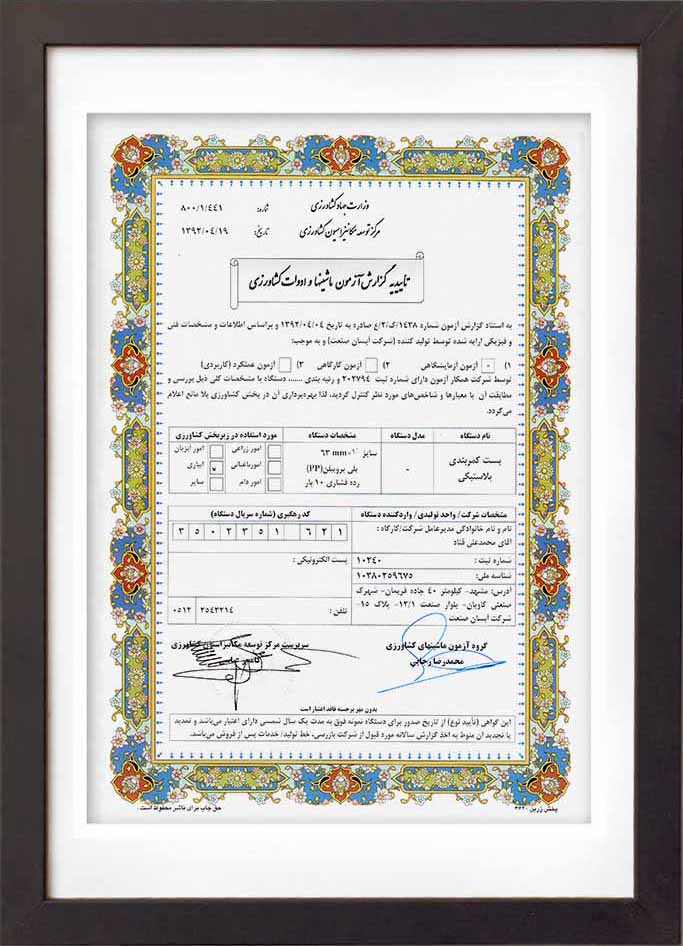 وزارت جهاد کشاورزی
شماره: ۸۰۰/۱/٤٤۱
مرکز توسعه مکانیزاسیون کشاورزی
تاریخ: ۱۳۹۲/۰٤/۱۹
تاییدیه گزارش آزمون ماشینها و ادوات کشاورزی
به استناد گزارش آزمون شماره ۱٤۳۸/ک/۲/ع صادره به تاریخ ۱۳۹۲/۰٤/۰٤ و براساس اطلاعات و مشخصات فنی
و فیزیکی ارایه شده توسط تولید کننده (شرکت آبسان صنعت) و به موجب:
۱) آزمون آزمایشگاهی ۲) آزمون کارگاهی ۳) آزمون عملکرد (کاربردی)
توسط شرکت همکار آزمون دارای شماره ثبت ۲۰۲۷۹٤ و رتبه بندی ...... دستگاه با مشخصات کلی ذیل بررسی و
مطابقت آن با معیارها و شاخص‌های مورد نظر کنترل گردید، لذا بهره‌برداری آن در بخش کشاورزی بلا مانع اعلام
می‌گردد.
نام دستگاه مدل دستگاه مشخصات دستگاه مورد استفاده در زیربخش کشاورزی
بست کمربندی
پلاستیکی
-
سایز ٦۳ mm
پلی پروپیلن(PP)
رده فشاری ۱۰ بار
امور زراعی امور آبزیان
امورباغبانی آبیاری ×
امور دام سایر
مشخصات شرکت/ واحد تولیدی/ واردکننده دستگاه
کد رهگیری (شماره سریال دستگاه)
نام و نام خانوادگی مدیرعامل شرکت/کارگاه :
آقای محمدعلی قناد
۳ ۵ ۰ ۲ ۳ ۵ ۱ ٦ ۲ ۱
شماره ثبت : ۱۰۲٤۰
پست الکترونیکی :
شناسه ملی: ۱۰۳۸۰۲۵۹٦۷۵
آدرس: مشهد- کیلومتر ٤۰ جاده فریمان- شهرک
صنعتی کاویان- بلوار صنعت ۱۳/۱- پلاک ۱۵-
شرکت آبسان صنعت
تلفن : ۳۵٤۳۲۱٤ ۰۵۱۲
گروه آزمون ماشینهای کشاورزی
محمدرضا رجایی
سرپرست مرکز توسعه مکانیزاسیون کشاورزی
بدون مهر برجسته فاقد اعتبار است
این گواهی (تأیید نوع) از تاریخ صدور برای دستگاه نمونه فوق به مدت یک سال شمسی دارای اعتبار می‌باشد و تمدید
یا تجدید آن منوط به اخذ گزارش سالانه مورد قبول از شرکت بازرسی، خط تولید/ خدمات پس از فروش می‌باشد.
حق چاپ برای ناشر محفوظ است .